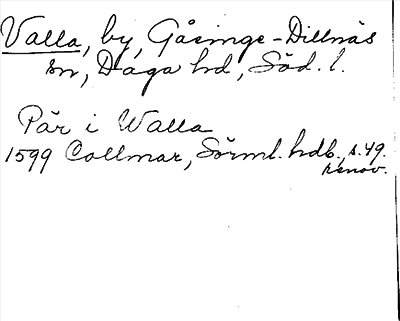 Valla, by, Gåsinge-Dillnäs
sn, Daga hd, Söd. l.
Pär i Walla
1599 Collmar, Sörml. hdb., s. 49.
renov.